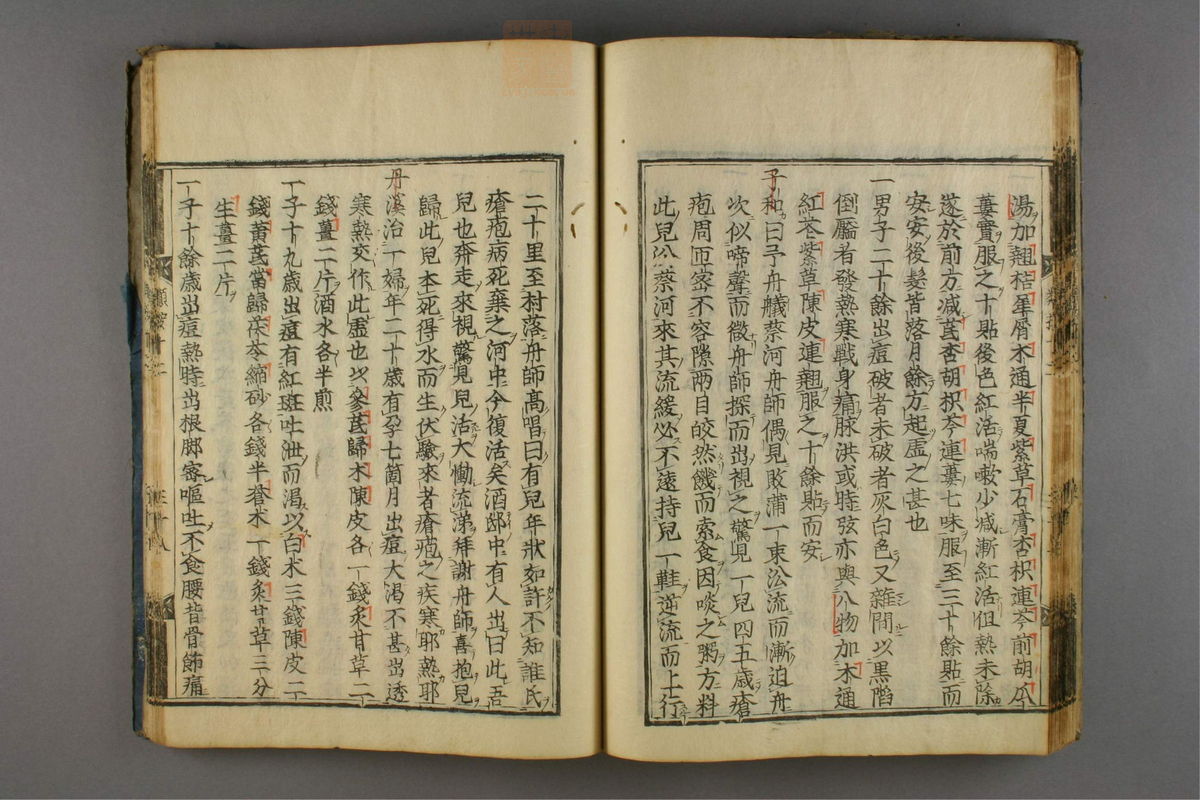 湯加翹桔犀屑木通半夏紫草石膏杏枳連芩前胡瓜
蔞實服之十貼後色紅活喘嗽少減漸紅活但熱未除
遂於前方減膏杏胡枳芩連蔞七味服至三十餘貼而
安安後髮皆落月餘方起虛之甚也
一男子二十餘出痘破者未破者灰白色又雜間以黑陷
倒靨者發熱寒戰身痛脉洪或時弦亦與八物加木通
紅花紫草陳皮連翹服之十餘貼而安
子和曰予舟艤蔡河舟師偶見敗蒲一束沿流而漸迫舟
次似啼聲而微舟師探而出視之驚見一兒四五歲瘡
疱周匝密不容隙兩目皎然饑而索食因啖之粥方料
此兒沿蔡河來其流緩必不遠持兒一鞋逆流而上行
二十里至村落舟師高唱曰有兒年狀如許不知誰氏
瘡疱病死棄之河中今復活矣酒邸中有人出曰此吾
兒也奔走來視驚見兒活大慟流涕拜謝舟師喜抱兒
歸此兒本死得水而生伏驗來者瘡疱之疾寒耶熱耶
丹溪治一婦年二十歲有孕七箇月出痘大渴不甚出透
寒熱交作此虛也以參芪歸术陳皮各一錢炙甘草二
錢薑二片酒水各半煎
一子十九歲出痘有紅斑吐泄而渴以白术三錢陳皮二
錢黃芪當歸茯苓縮砂各錢半蒼术一錢炙甘草三分
生薑二片
一子十餘歲出痘熱時出根脚密嘔吐不食腰背骨節痛